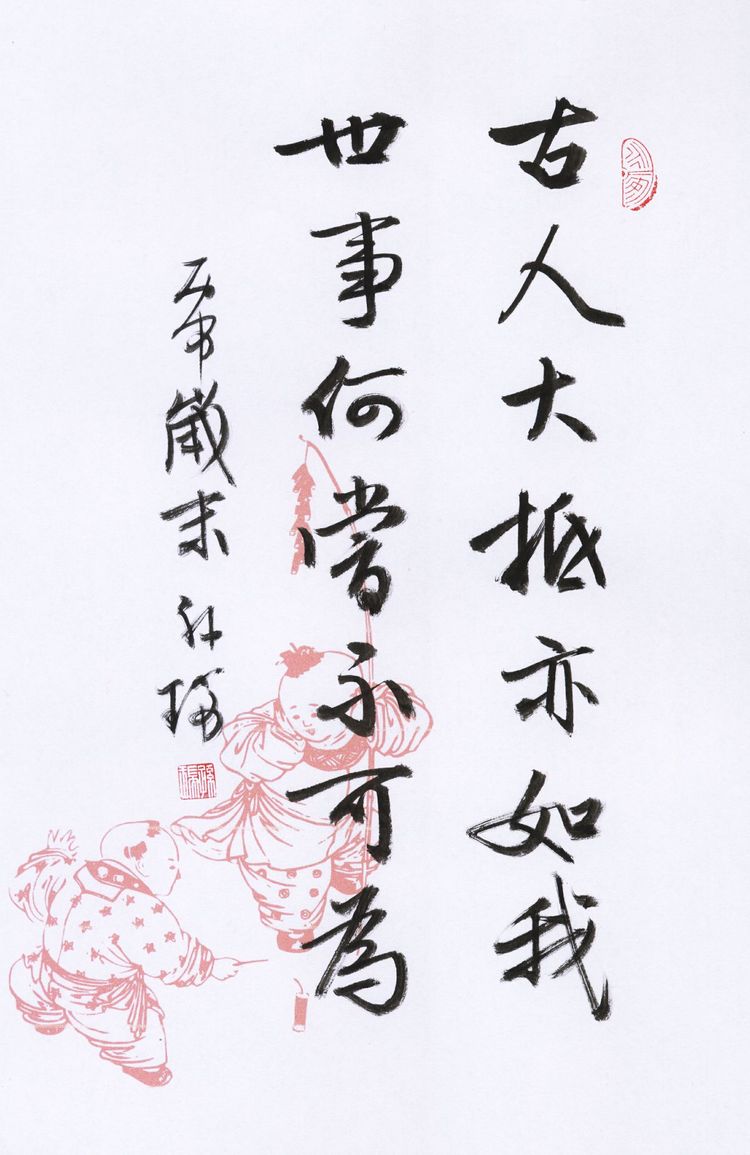 古人大抵亦如我
世事何嘗不可為
歲末